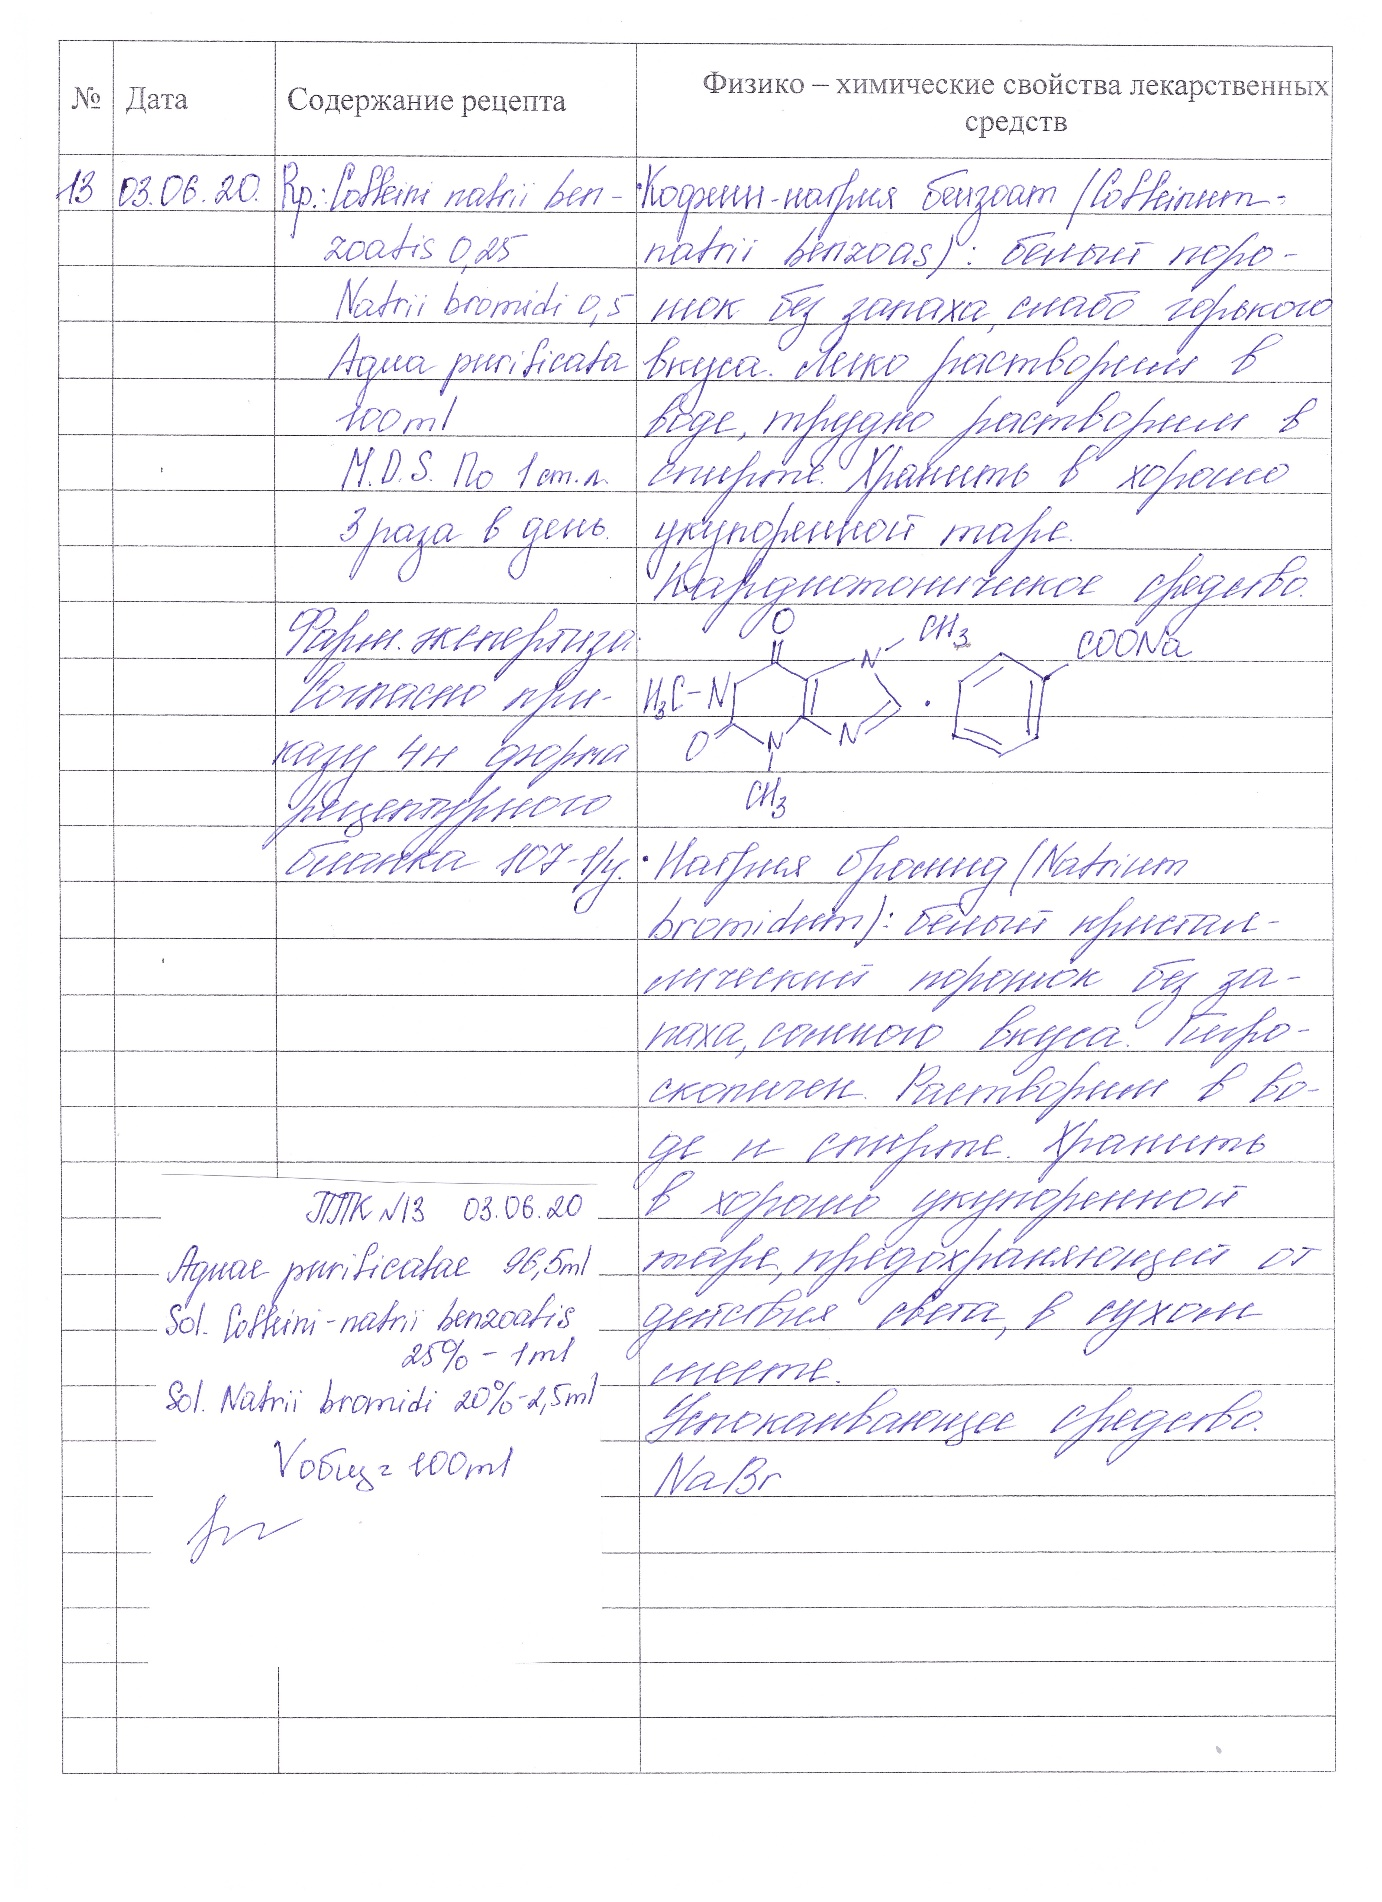 № Дата Содержание рецепта Физико – химические свойства лекарственных
средств
13 03.06.20. Rp.: Coffeini natrii ben-
zoatis 0,25
Natrii bromidi 0,5
Aqua purificata
100ml
M.D.S. По 1 ст.л.
3 раза в день.
Фарм. экспертиза:
Согласно при-
казу 4н форма
рецептурного
бланка 107-1/у.
Кофеин-натрия бензоат (Coffeinum-
natrii benzoas): белый поро-
шок без запаха, слабо горького
вкуса. Легко растворим в
воде, трудно растворим в
спирте. Хранить в хорошо
укупоренной таре.
Кардиотоническое средство.
O
CH3
COONa
N
H3C-N
O
N
N
CH3
• Натрия бромид (Natrium
bromidum): белый кристал-
лический порошок без за-
паха, соленого вкуса. Гигро-
скопичен. Растворим в во-
де и спирте. Хранить
в хорошо укупоренной
таре, предохраняющей от
действия света, в сухом
месте.
Успокаивающее средство.
NaBr
ППК №13 03.06.20
Aquae purificatae 96,5ml
Sol. Coffeini-natrii benzoatis
25% - 1ml
Sol. Natrii bromidi 20%-2,5ml
Vобщ= 100ml